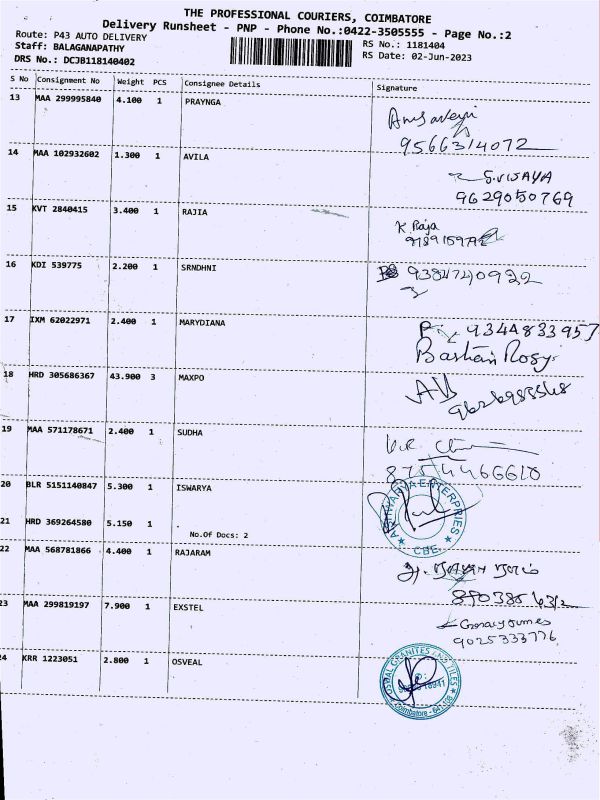 THE PROFESSIONAL COURIERS, COIMBATORE
Delivery Runsheet - PNP - Phone No.:0422-3505555 - Page No.:2
Route: P43 AUTO DELIVERY
RS No.: 1181404
Staff: BALAGANAPATHY
RS Date: 02-Jun-2023
DRS No.: DCJB118140402
S No Consignment No Weight PCS Consignee Details Signature
13 MAA 299995840 4.100 1 PRAYNGA
9566314072
14 MAA 102932602 1.300 1 AVILA
S.VIJAYA
9629050769
15 KVT 2840415 3.400 1 RAJIA
K. Raja
16 KDI 539775 2.200 1 SRNDHNI
9384740922
17 IXM 62022971 2.400 1 MARYDIANA
9344833957
Bastian Rosy
18 HRD 305686367 43.900 3 MAXPO
19 MAA 571178671 2.400 1 SUDHA
8754466610
20 BLR 5151140847 5.300 1 ISWARYA
AISHWARYA ENTERPRIES
CBE
21 HRD 369264580 5.150 1
No.Of Docs: 2
22 MAA 568781866 4.400 1 RAJARAM
23 MAA 299819197 7.900 1 EXSTEL
9025333776
24 KRR 1223051 2.800 1 OSVEAL
OSWAL GRANITES AND TILES